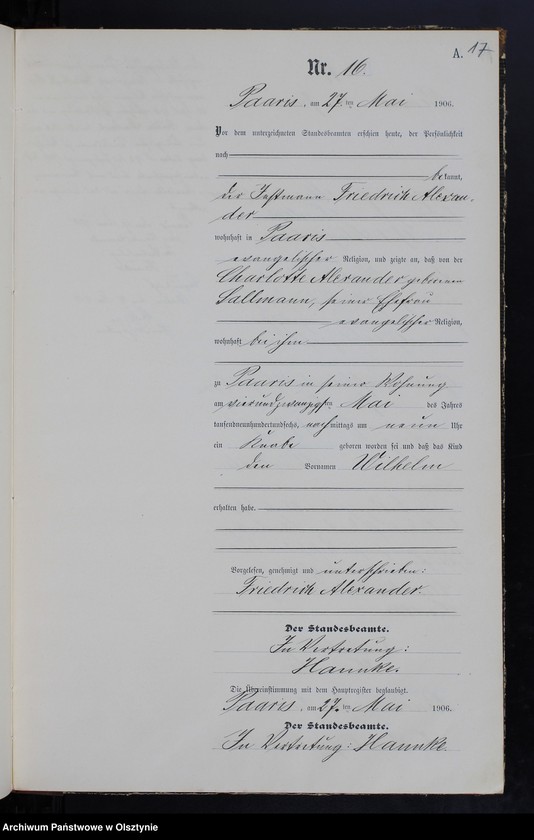 A. 17
Nr. 16.
Paaris, am 27ten Mai 1906.
Vor dem unterzeichneten Standesbeamten erschien heute, der Persönlichkeit
nach
bekannt,
der Instmann Friedrich Alexan-
der
wohnhaft in Paaris
evangelischer Religion, und zeigte an, daß von der
Charlotte Alexander geborenen
Sallmann, seiner Ehefrau
evangelischer Religion,
wohnhaft bei ihm
zu Paaris in seiner Wohnung
am vierundzwanzigsten Mai des Jahres
tausendneunhundertundsechs, nachmittags um neun Uhr
ein Knabe geboren worden sei und daß das Kind
den Vornamen Wilhelm
erhalten habe.
Vorgelesen, genehmigt und unterschrieben:
Friedrich Alexander.
Der Standesbeamte.
In Vertretung:
Hannke.
Die Übereinstimmung mit dem Hauptregister beglaubigt.
Paaris, am 27.ten Mai 1906.
Der Standesbeamte.
In Vertretung: Hannke.
Archiwum Państwowe w Olsztynie